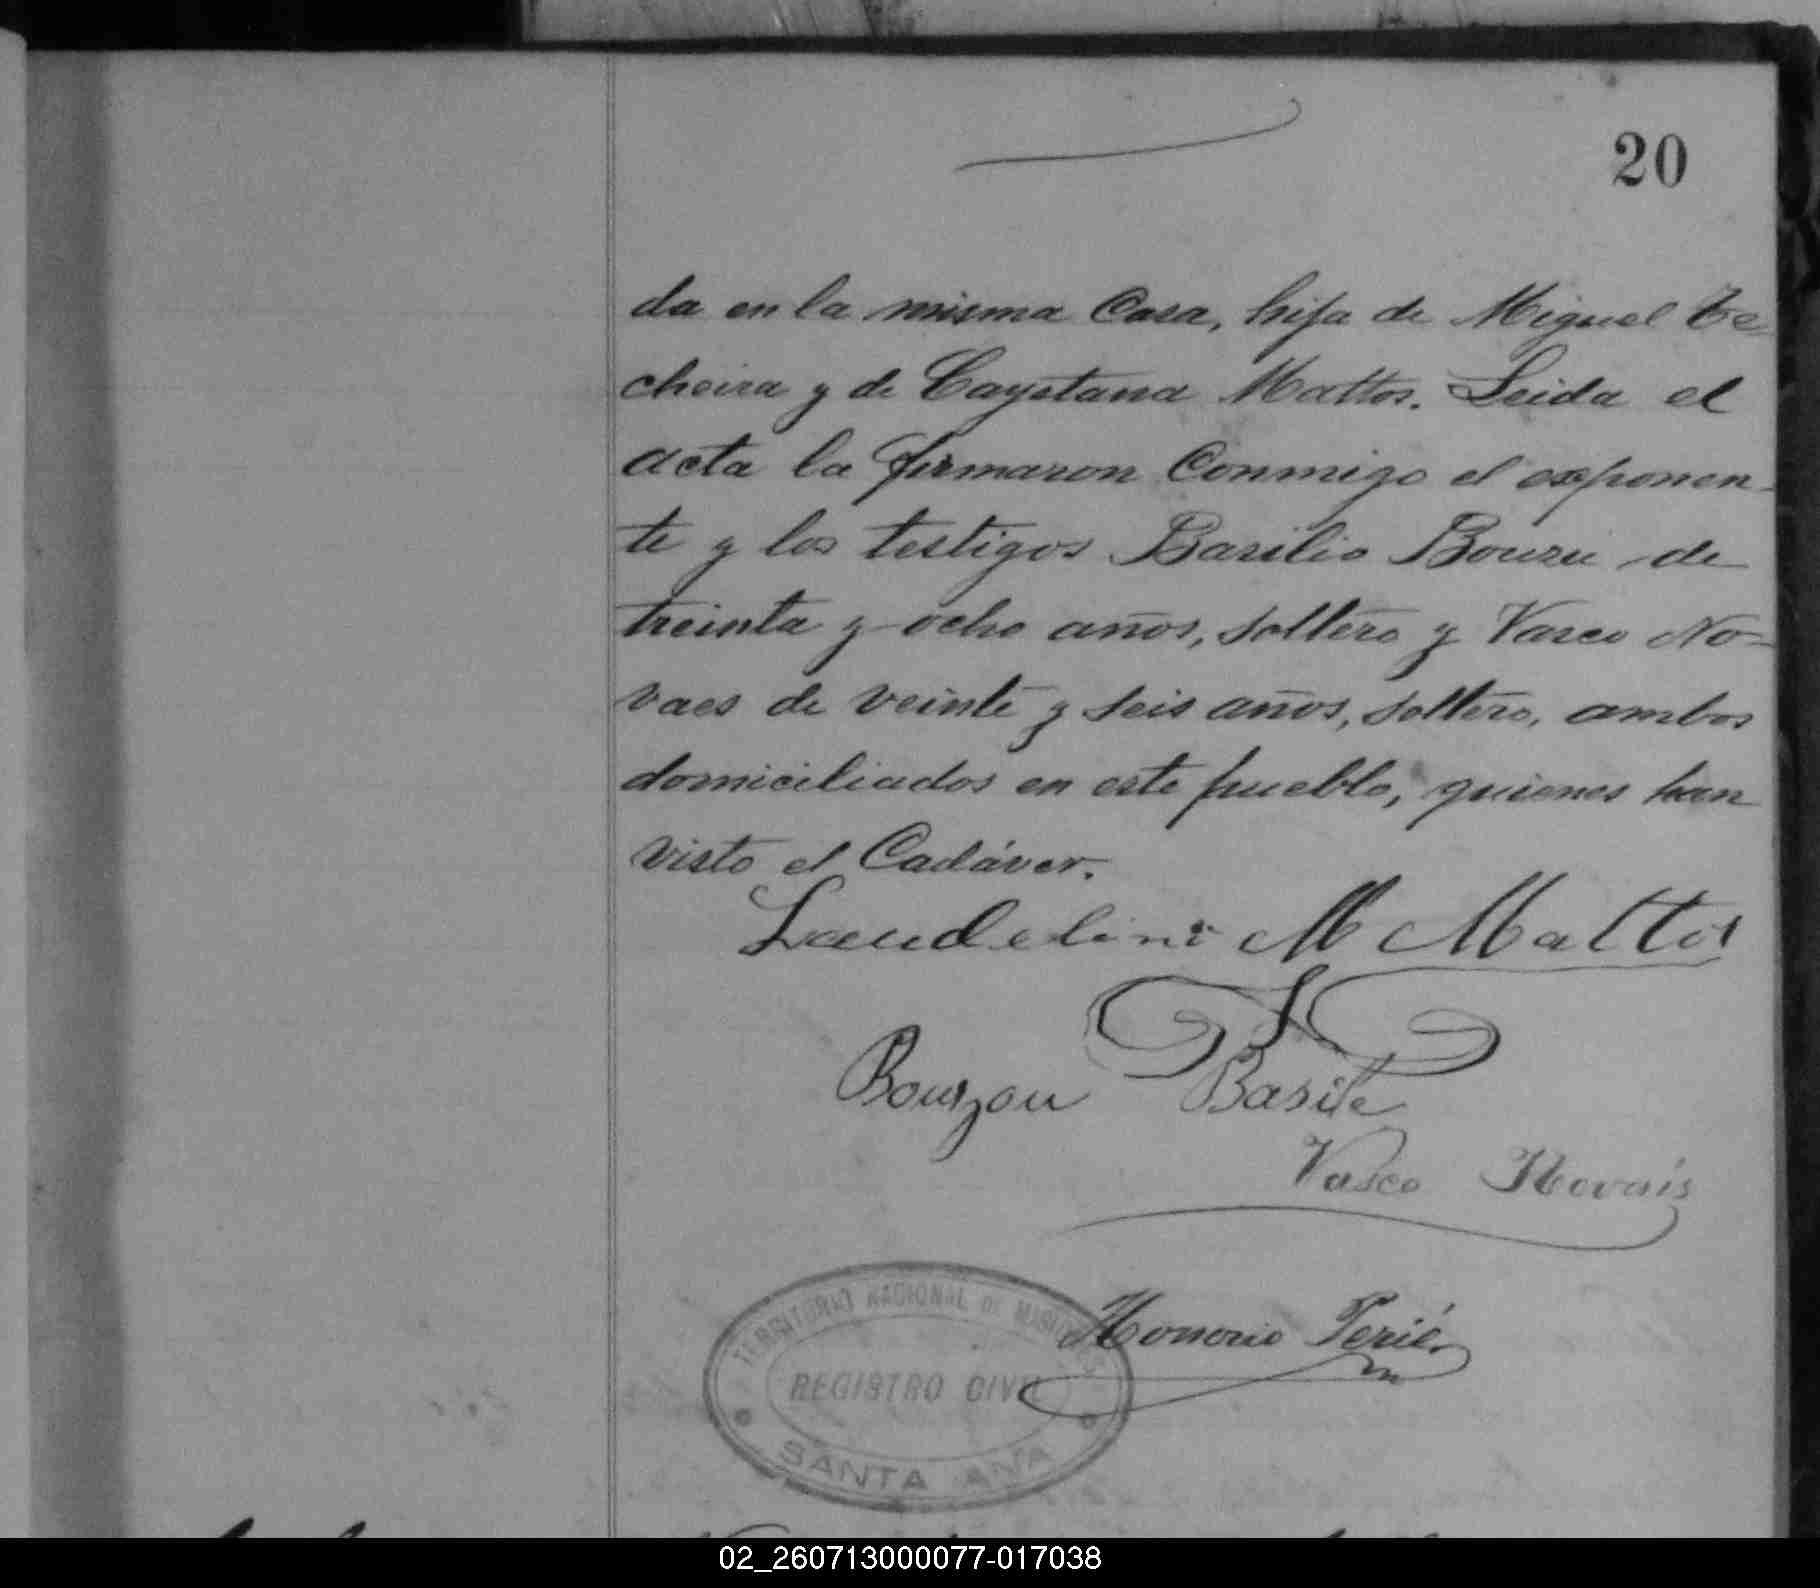 20
da en la misma Casa, hija de Miguel Te-
cheira y de Cayetana Mattos. Leida el
acta la firmaron Conmigo el exponen-
te y los testigos Basilio Bouzu de
treinta y ocho años, soltero y Vasco No-
vaes de veinte y seis años, soltero, ambos
domiciliados en este pueblo, quienes han
visto el Cadáver.
Laudelino M Mattos
Bouzon Basile
Vasco Novais
Honorio Perié
TERRITORIO NACIONAL DE MISIONES
REGISTRO CIVIL
SANTA ANA
02_260713000077-017038